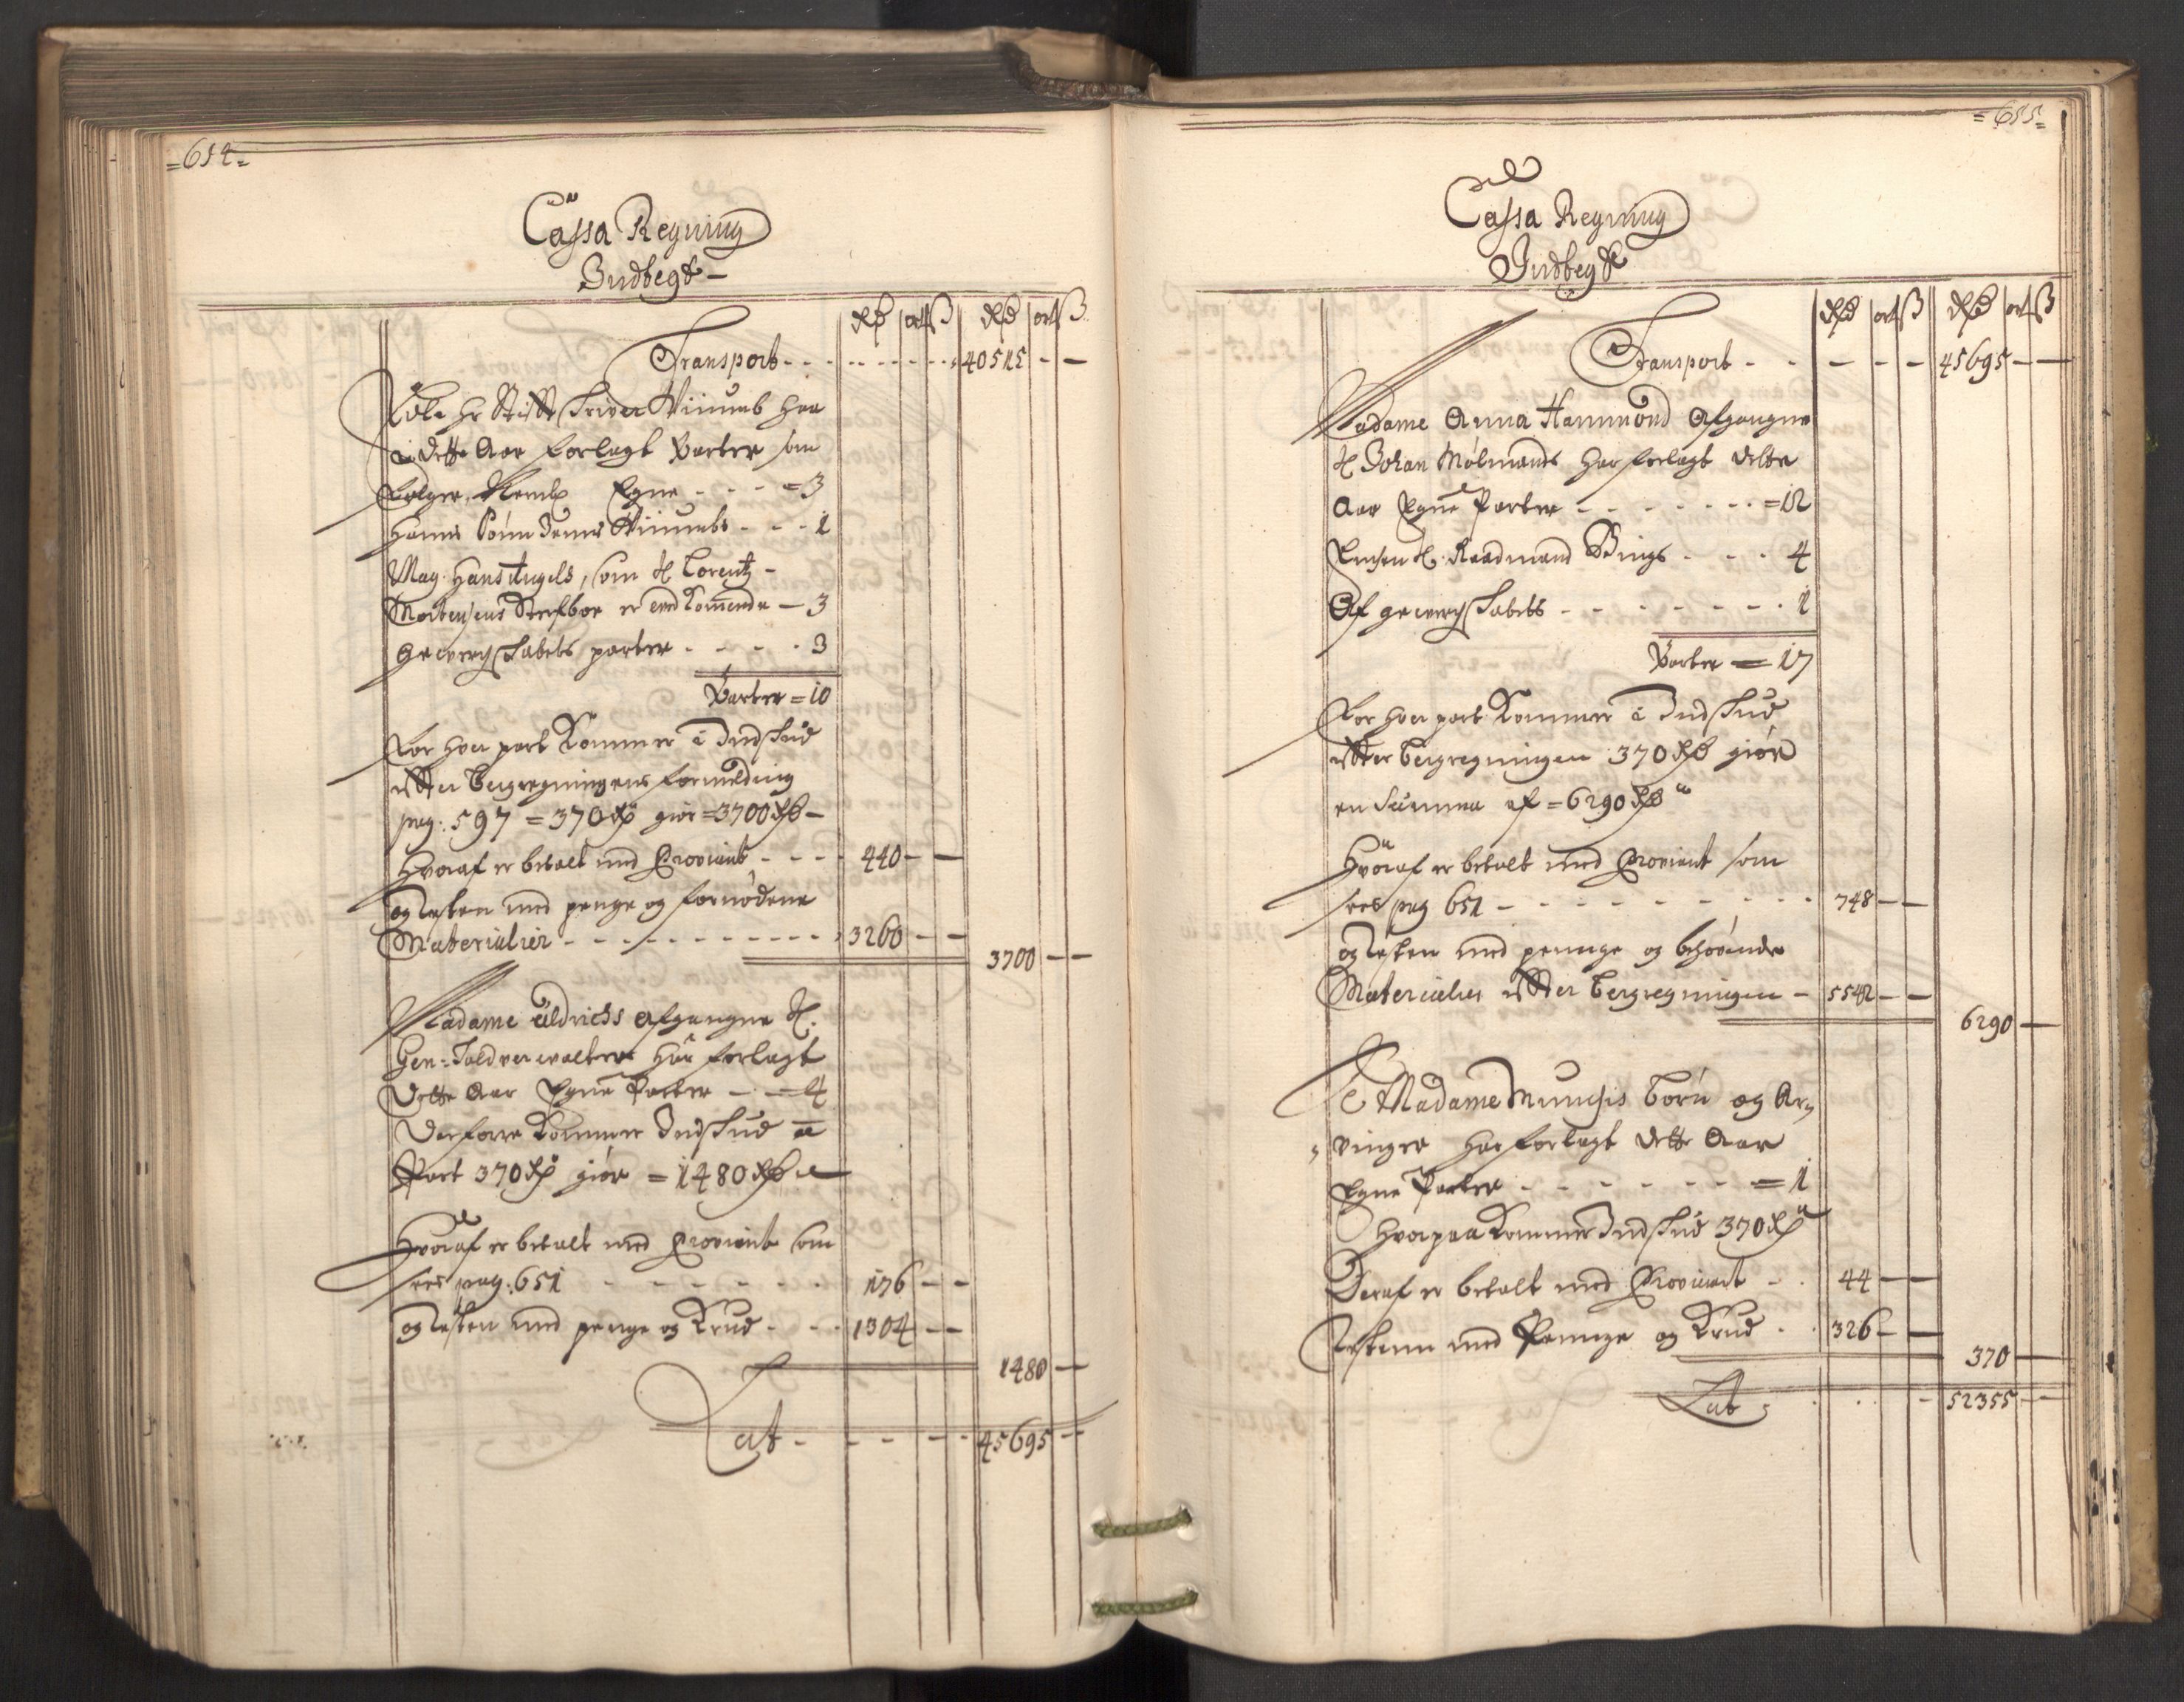 =654=
Cassa Regning
Indtegt
Rd ort ß Rd ort ß
Transport - - - - - - 40515 - -
Edle Hr Stiftskriver Wiimb har
i dette Aar forlagt Parter som
følger, Nemlig Egne - - - =3
Hanns Sønn Jenns Wiimbs - - - 1
Mag: Hans Angels, som H Lorentz -
Mortensens Sterfboe er vedkommende - 3
Grewerchskabets parter - - - - 3
Parter = 10
For hver part kommer i Indskud
efter bergregningens formelding
pag: 597 = 370 Rd giør = 3700 Rd -
Hvoraf er betalt med Proviant - - - 440 - -
og resten med penge og fornødene
Materialier - - - - - - - - 3260 - -
3700 - -
Madame Uldrichs afgangne H.
Gen: Toldverwalter har forlagt
dette Aar Egne Parter - - = 4
Derforre kommer Indskud a
Part 370 Rd giør = 1480 Rd
Hvoraf er betalt med Proviant som
sees pag: 651 - - - - - - 176 - -
og resten med penge og Krud - - - 1304 - -
1480 -
Lat - - - - - 45695 - -
=655=
Cassa Regning
Indtegt
Rd ort ß Rd ort ß
Transport - - - - - 45695 - -
Madame Anna Hammond afgangne
H Johan Mølmands har forlagt dette
Aar Egne Parter - - - - - - - =12
Hr. Raadmand Bings - - - 4
Af grewerchskabets - - - - - - - 1
Parter = 17
For hver part kommer i Indskud
efter bergregningen 370 Rd giør
en Summa af = 6290 Rd
Hvoraf er betalt med Proviant som
sees pag 651 - - - - - - - - - 748 - -
og resten med pennge og behøvende
Materialier efter bergregningen - 5542 - -
6290 -
Madame Munchs børn og Ar=
=vinger har forlagt dette Aar
Egne Parter - - - - - - = 1
Hvorpaa kommer Indskud 370 Rd
Deraf er betalt med Proviant - . 44 - -
resten med Pennge og Krud . . 326 - -
370 -
Lat - . . - 52355 - -